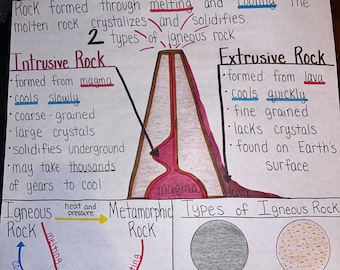 Rock formed through melting and cooling. The
molten rock crystalizes and solidifies.
2 types of igneous rock
Intrusive Rock
· formed from magma
· cools slowly
· coarse-grained
· large crystals
· solidifies underground
· may take thousands
of years to cool
Extrusive Rock
· formed from lava
· cools quickly
· fine grained
· lacks crystals
· found on Earth's
surface
magma
lava
Igneous
Rock
heat and
pressure
Metamorphic
Rock
melting
melting
Types of Igneous Rock